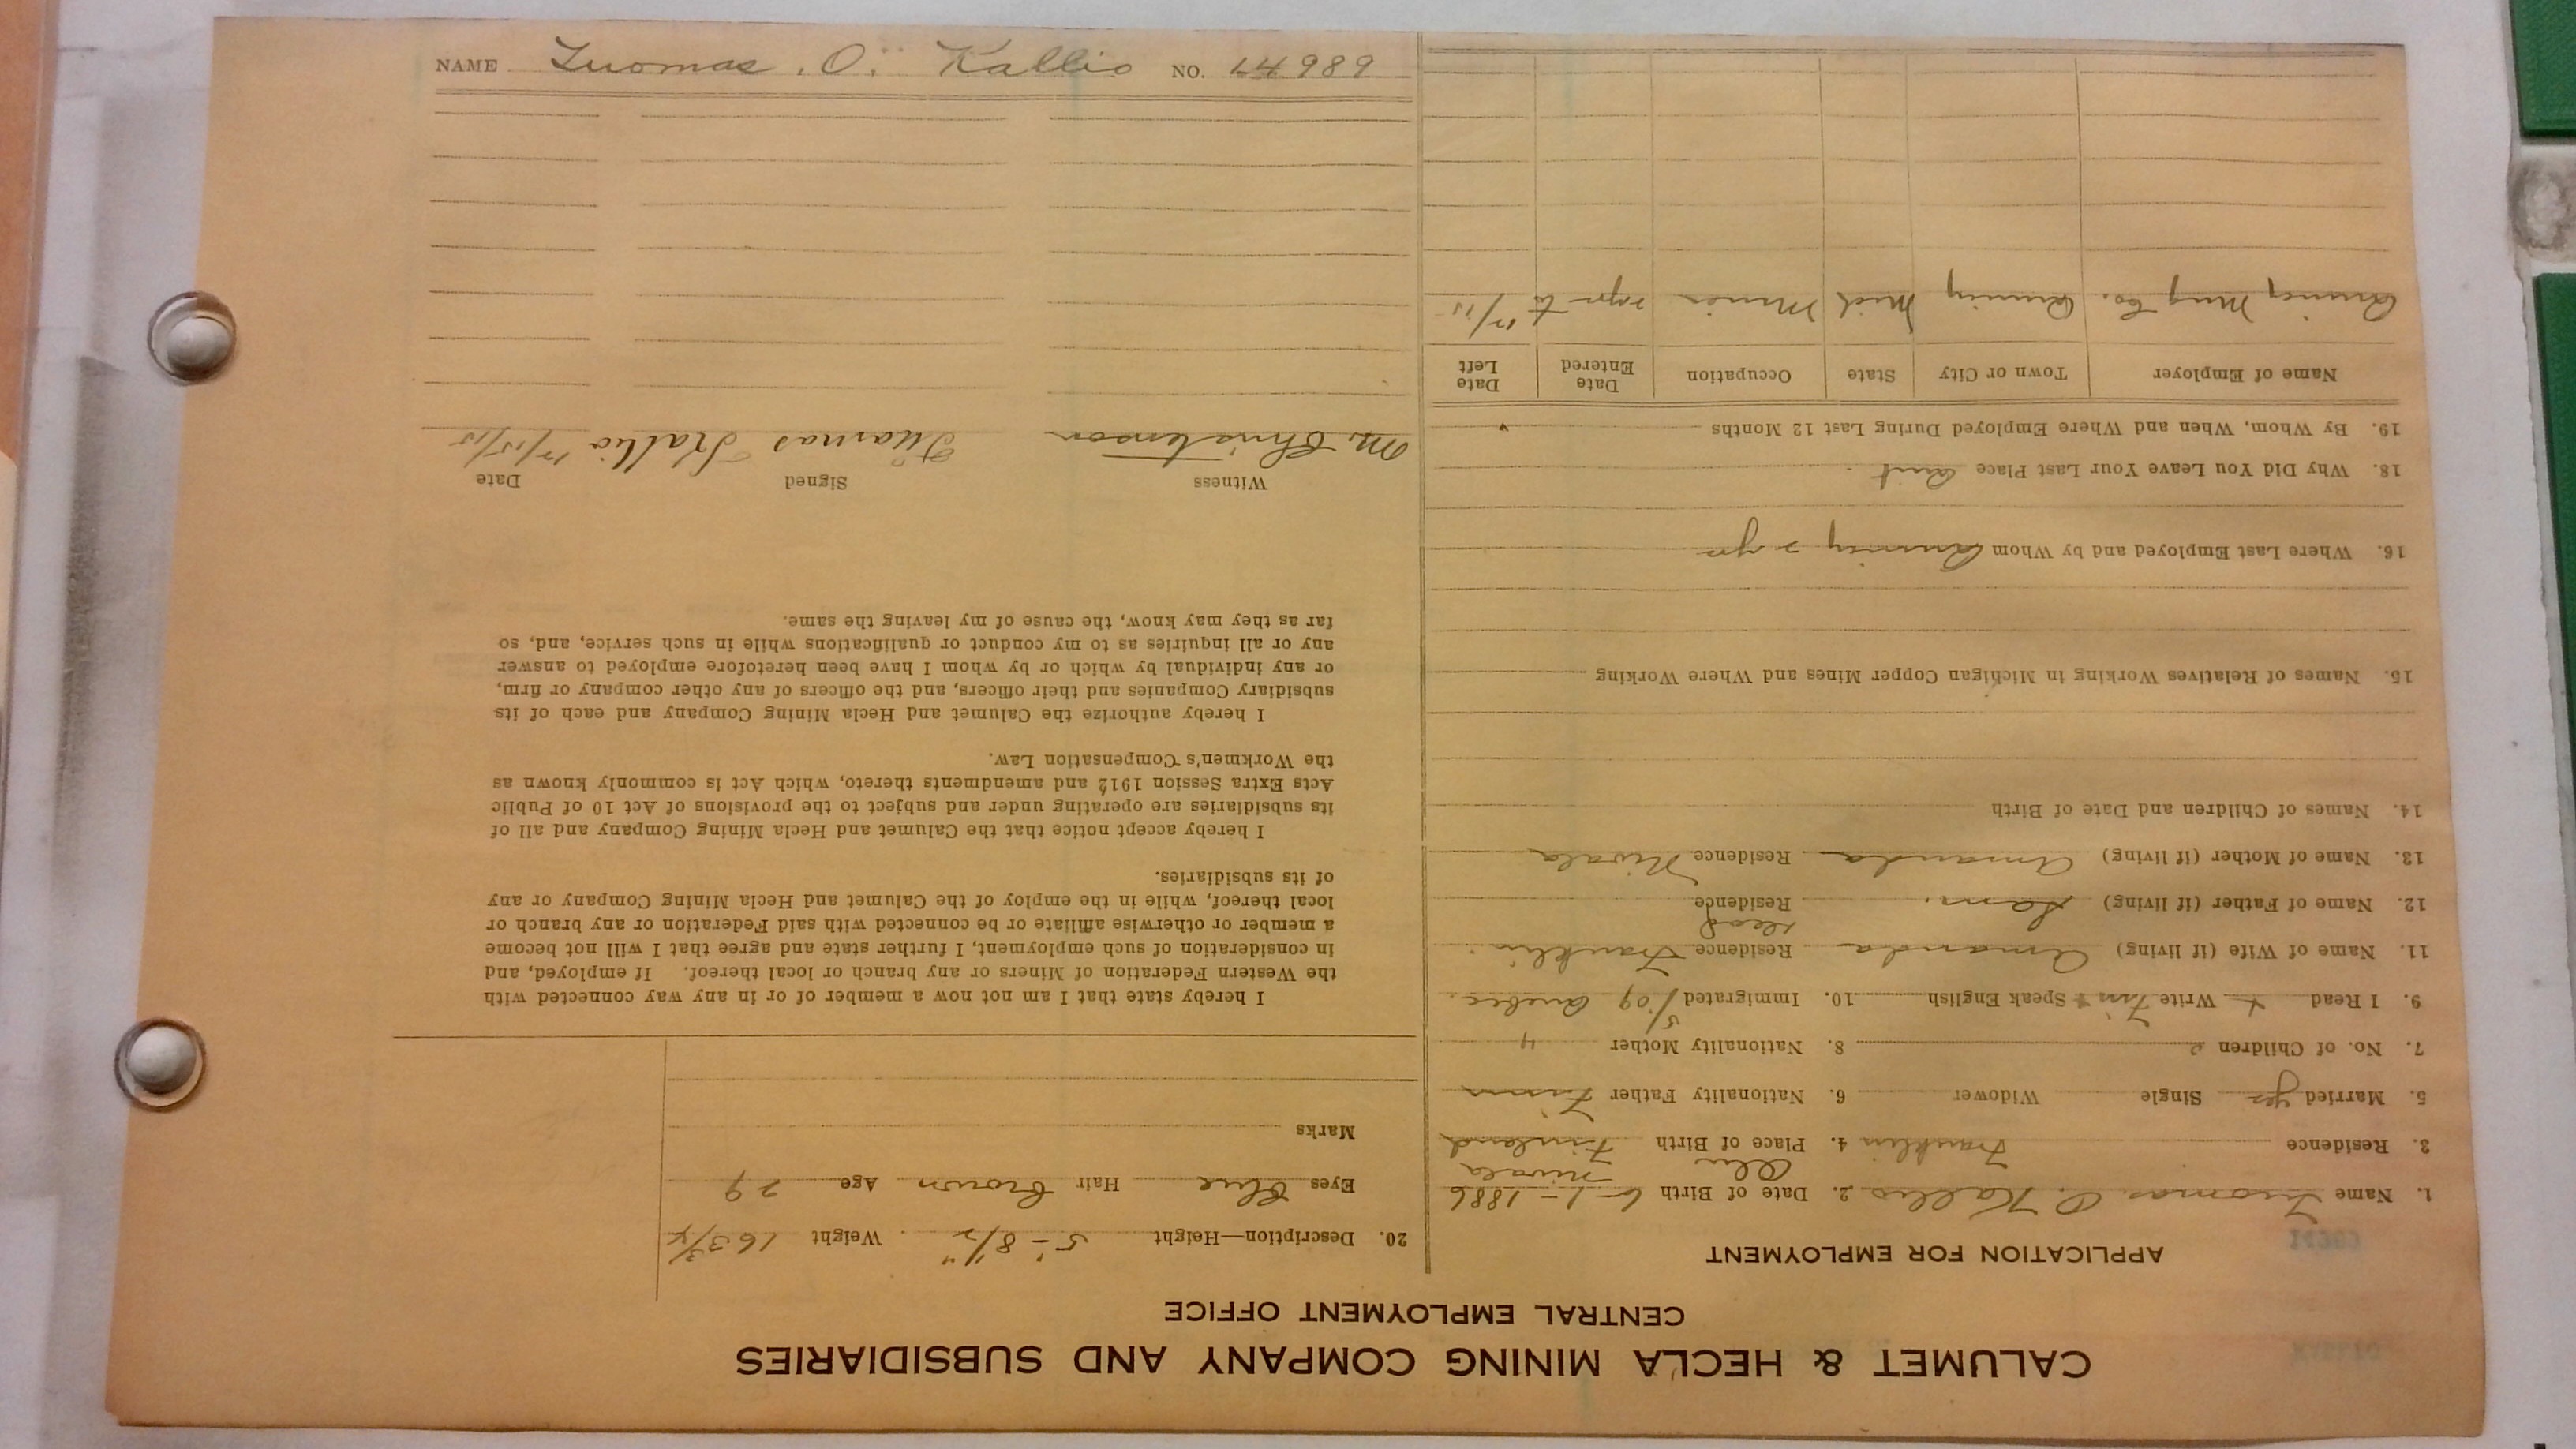 CALUMET & HECLA MINING COMPANY AND SUBSIDIARIES
CENTRAL EMPLOYMENT OFFICE
APPLICATION FOR EMPLOYMENT
1. Name Tuomas O. Kallio 2. Date of Birth 6-1-1886
Nivala
3. Residence Franklin 4. Place of Birth Finland
5. Married yes Single Widower 6. Nationality Father Finn
7. No. of Children 2 8. Nationality Mother "
9. I Read + Write Finn + Speak English 10. Immigrated 5/09 Quebec
11. Name of Wife (if living) Amanda Residence Franklin
12. Name of Father (if living) Sam Residence Dead
13. Name of Mother (if living) Amanda Residence Nivala
14. Names of Children and Date of Birth
15. Names of Relatives Working in Michigan Copper Mines and Where Working
16. Where Last Employed and by Whom Quincy 2 yrs
18. Why Did You Leave Your Last Place Quit
19. By Whom, When and Where Employed During Last 12 Months
Name of Employer Town or City State Occupation Date Entered Date Left
Quincy Mng Co. Quincy Mich Miner 2 yrs to 12/15
20. Description—Height 5'-8 1/2" Weight 163 3/4
Eyes Blue Hair Brown Age 29
Marks
I hereby state that I am not now a member of or in any way connected with
the Western Federation of Miners or any branch or local thereof. If employed, and
in consideration of such employment, I further state and agree that I will not become
a member or otherwise affiliate or be connected with said Federation or any branch or
local thereof, while in the employ of the Calumet and Hecla Mining Company or any
of its subsidiaries.
I hereby accept notice that the Calumet and Hecla Mining Company and all of
its subsidiaries are operating under and subject to the provisions of Act 10 of Public
Acts Extra Session 1912 and amendments thereto, which Act is commonly known as
the Workmen's Compensation Law.
I hereby authorize the Calumet and Hecla Mining Company and each of its
subsidiary Companies and their officers, and the officers of any other company or firm,
or any individual by which or by whom I have been heretofore employed to answer
any or all inquiries as to my conduct or qualifications while in such service, and, so
far as they may know, the cause of my leaving the same.
Witness Signed Date
M. Christenson Tuomas Kallio 12/15/15
NAME Tuomas. O. Kallio NO. 14989